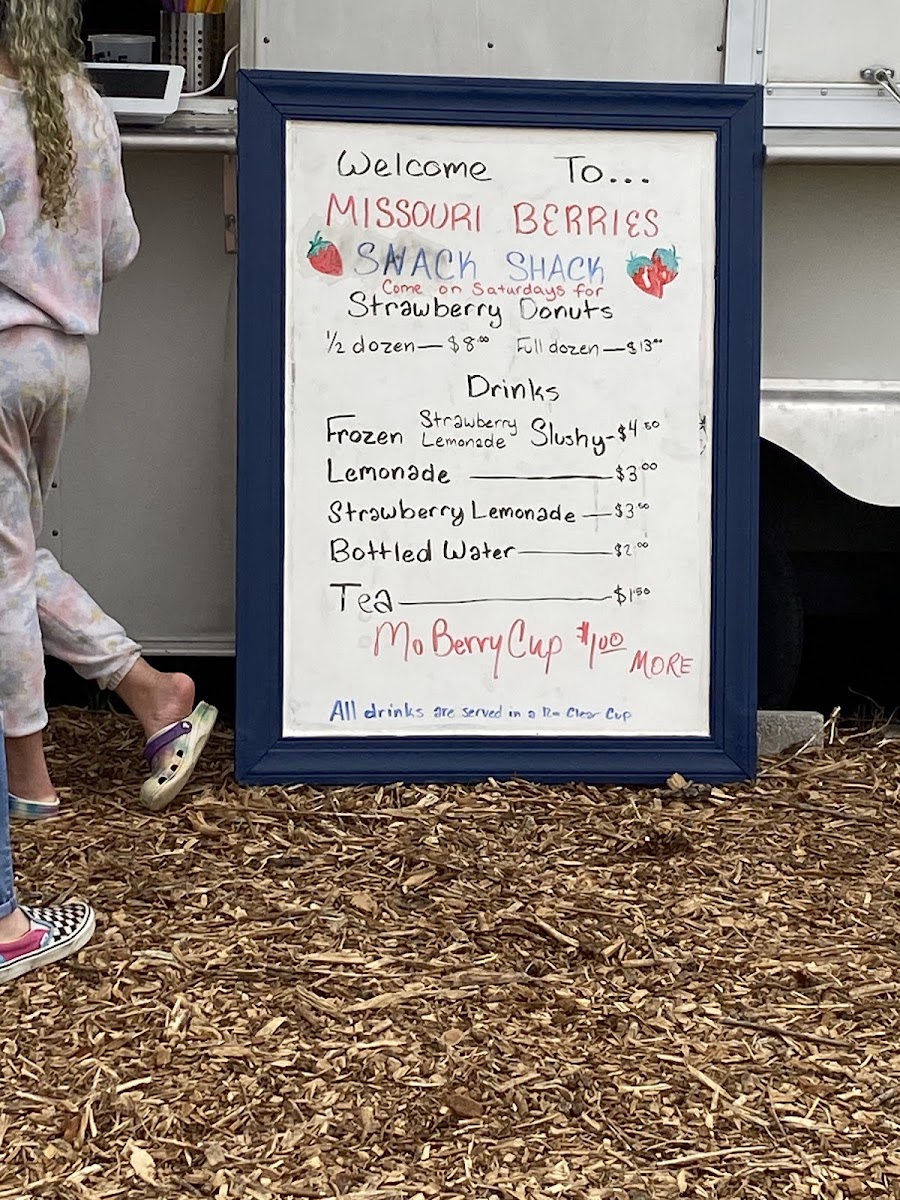 Welcome To...
MISSOURI BERRIES
SNACK SHACK
Come on Saturdays for
Strawberry Donuts
1/2 dozen — $8.00 Full dozen — $13.00
Drinks
Frozen Strawberry Lemonade Slushy - $4.50
Lemonade — $3.00
Strawberry Lemonade — $3.50
Bottled Water — $2.00
Tea — $1.50
Mo Berry Cup $1.00 MORE
All drinks are served in a Clear Cup